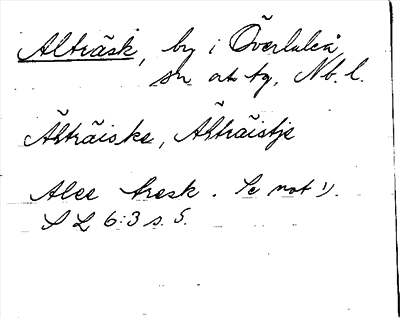 Alträsk, by i Överluleå
sn och tg, Nb. l.
Ältträiske, Ältträistje
Alee tresk. Se not 1).
S L 6:3 s. 5.